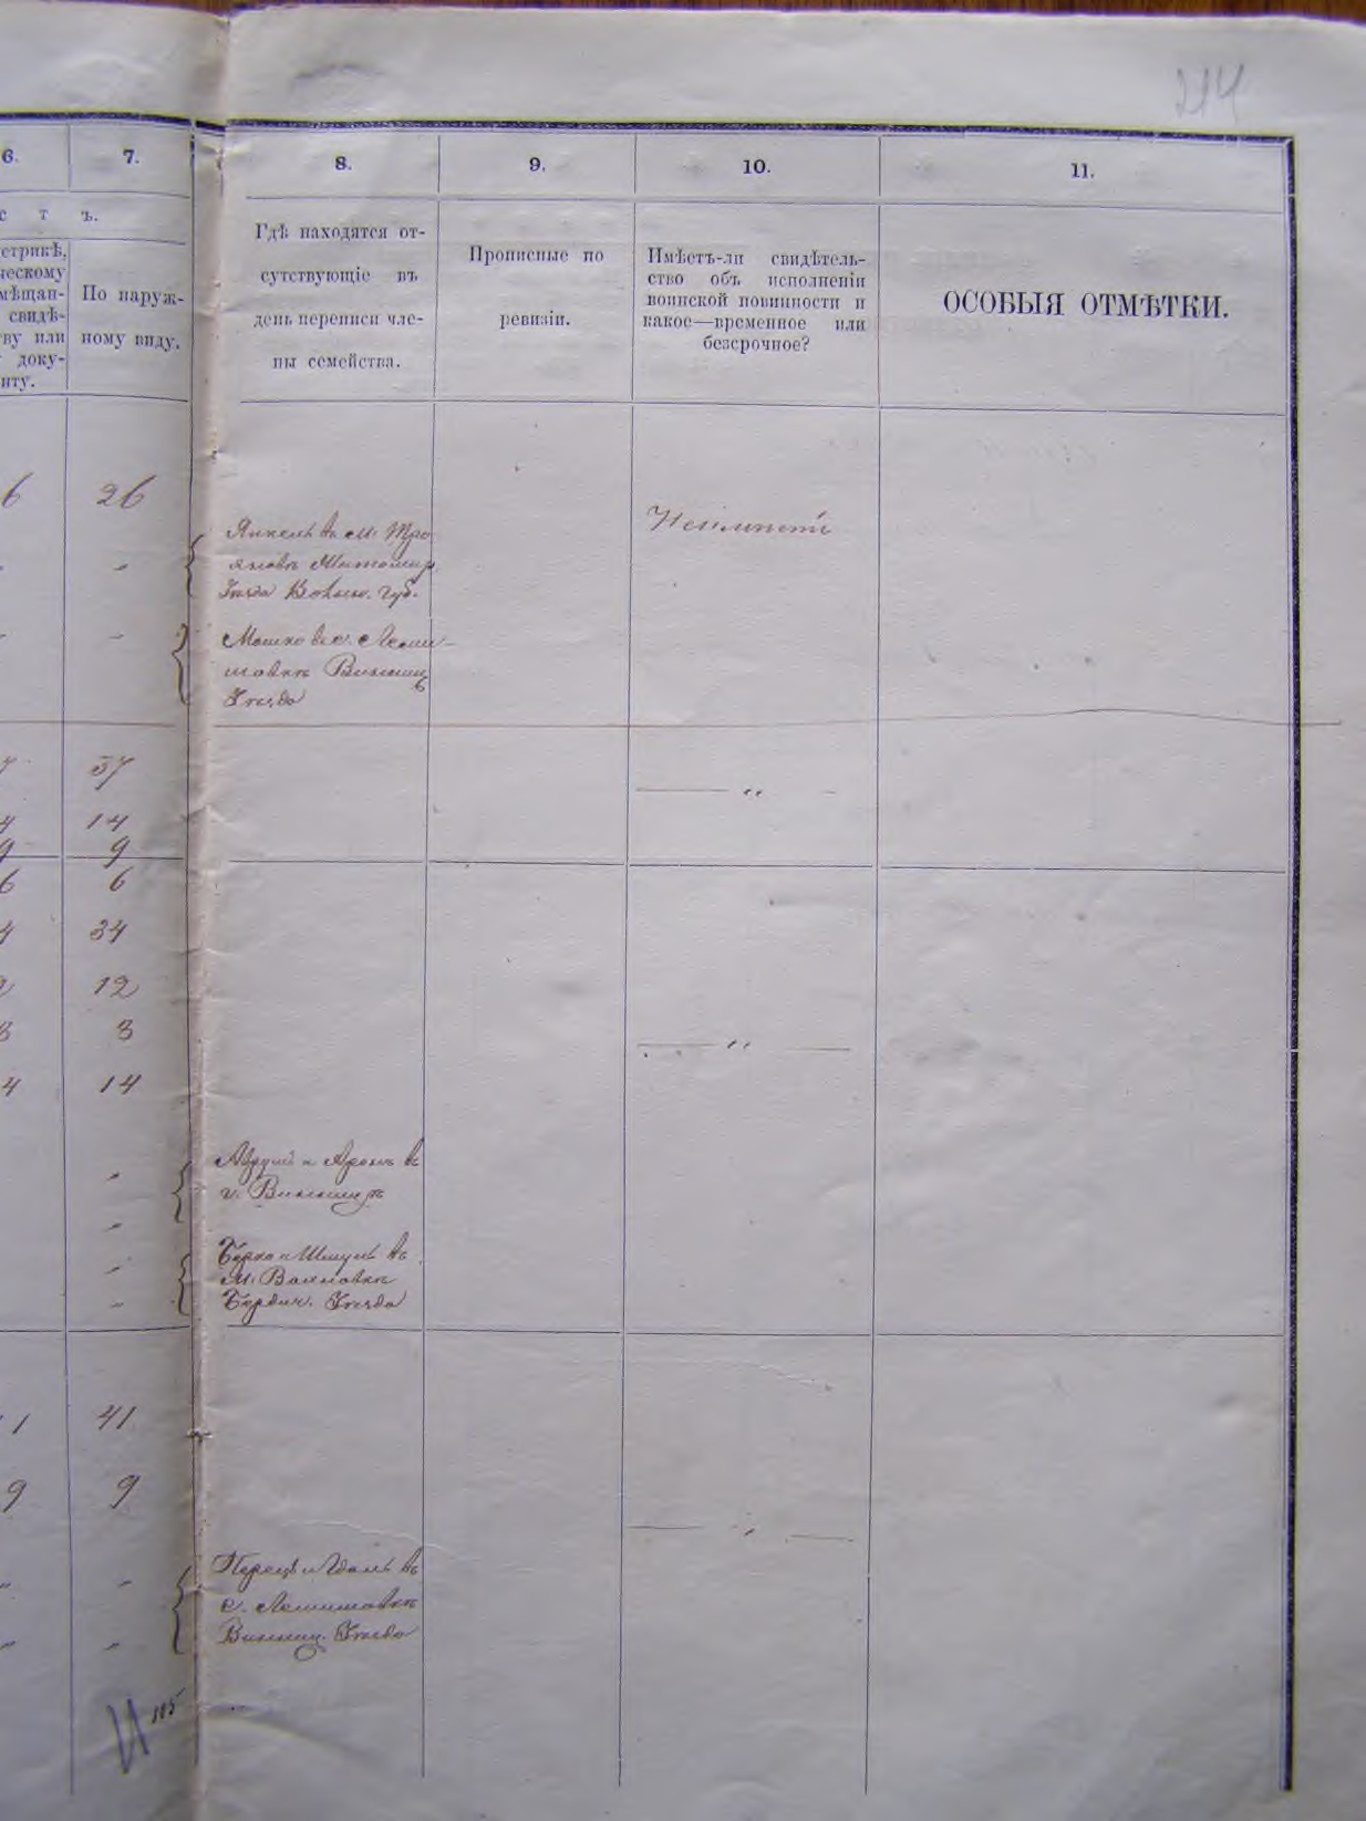 214
6. 7. 8. 9. 10. 11.
с т ъ.
етрикѣ,
ческому
мѣщан-
свидѣ-
ву или
доку-
нту.
По наруж-
ному виду.
Гдѣ находятся от-
сутствующіе въ
день переписи чле-
ны семейства.
Прописные по
ревизіи.
Имѣетъ-ли свидѣтель-
ство объ исполненіи
воинской повинности и
какое—временное или
безсрочное?
ОСОБЫЯ ОТМѢТКИ.
6 26
Янкель въ м. Тро
яновѣ Житомир.
Уѣзда Волын. губ.
Неимѣетъ
Мошко въ с. Леми-
шовкѣ Винниц
Уѣзда
7 37
4 14
9 9
6 6
4 34
2 12
3 3
4 14
и Аронъ въ
г. Винницѣ
Берко и Шмуль въ
м. Вахновкѣ
Бердич. Уѣзда
1 41
9 9
Перецъ и въ
с. Лемишовкѣ
Винниц. Уѣзда